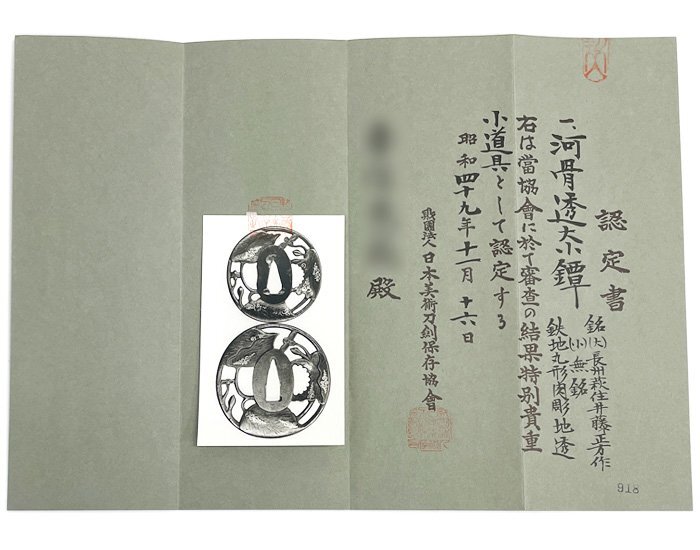 認定書
一、河骨透大小鐔
銘(大)長州萩住井藤正芳作
(小)無銘
鉄地丸形肉彫地透
右は當協會に於て審査の結果特別貴重
小道具として認定する
昭和四十九年十一月十六日
財團法人日本美術刀剣保存協會
殿
918